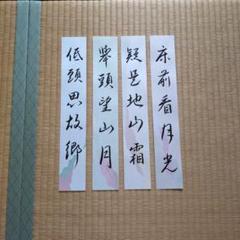 床前看月光
疑是地上霜
擧頭望山月
低頭思故郷